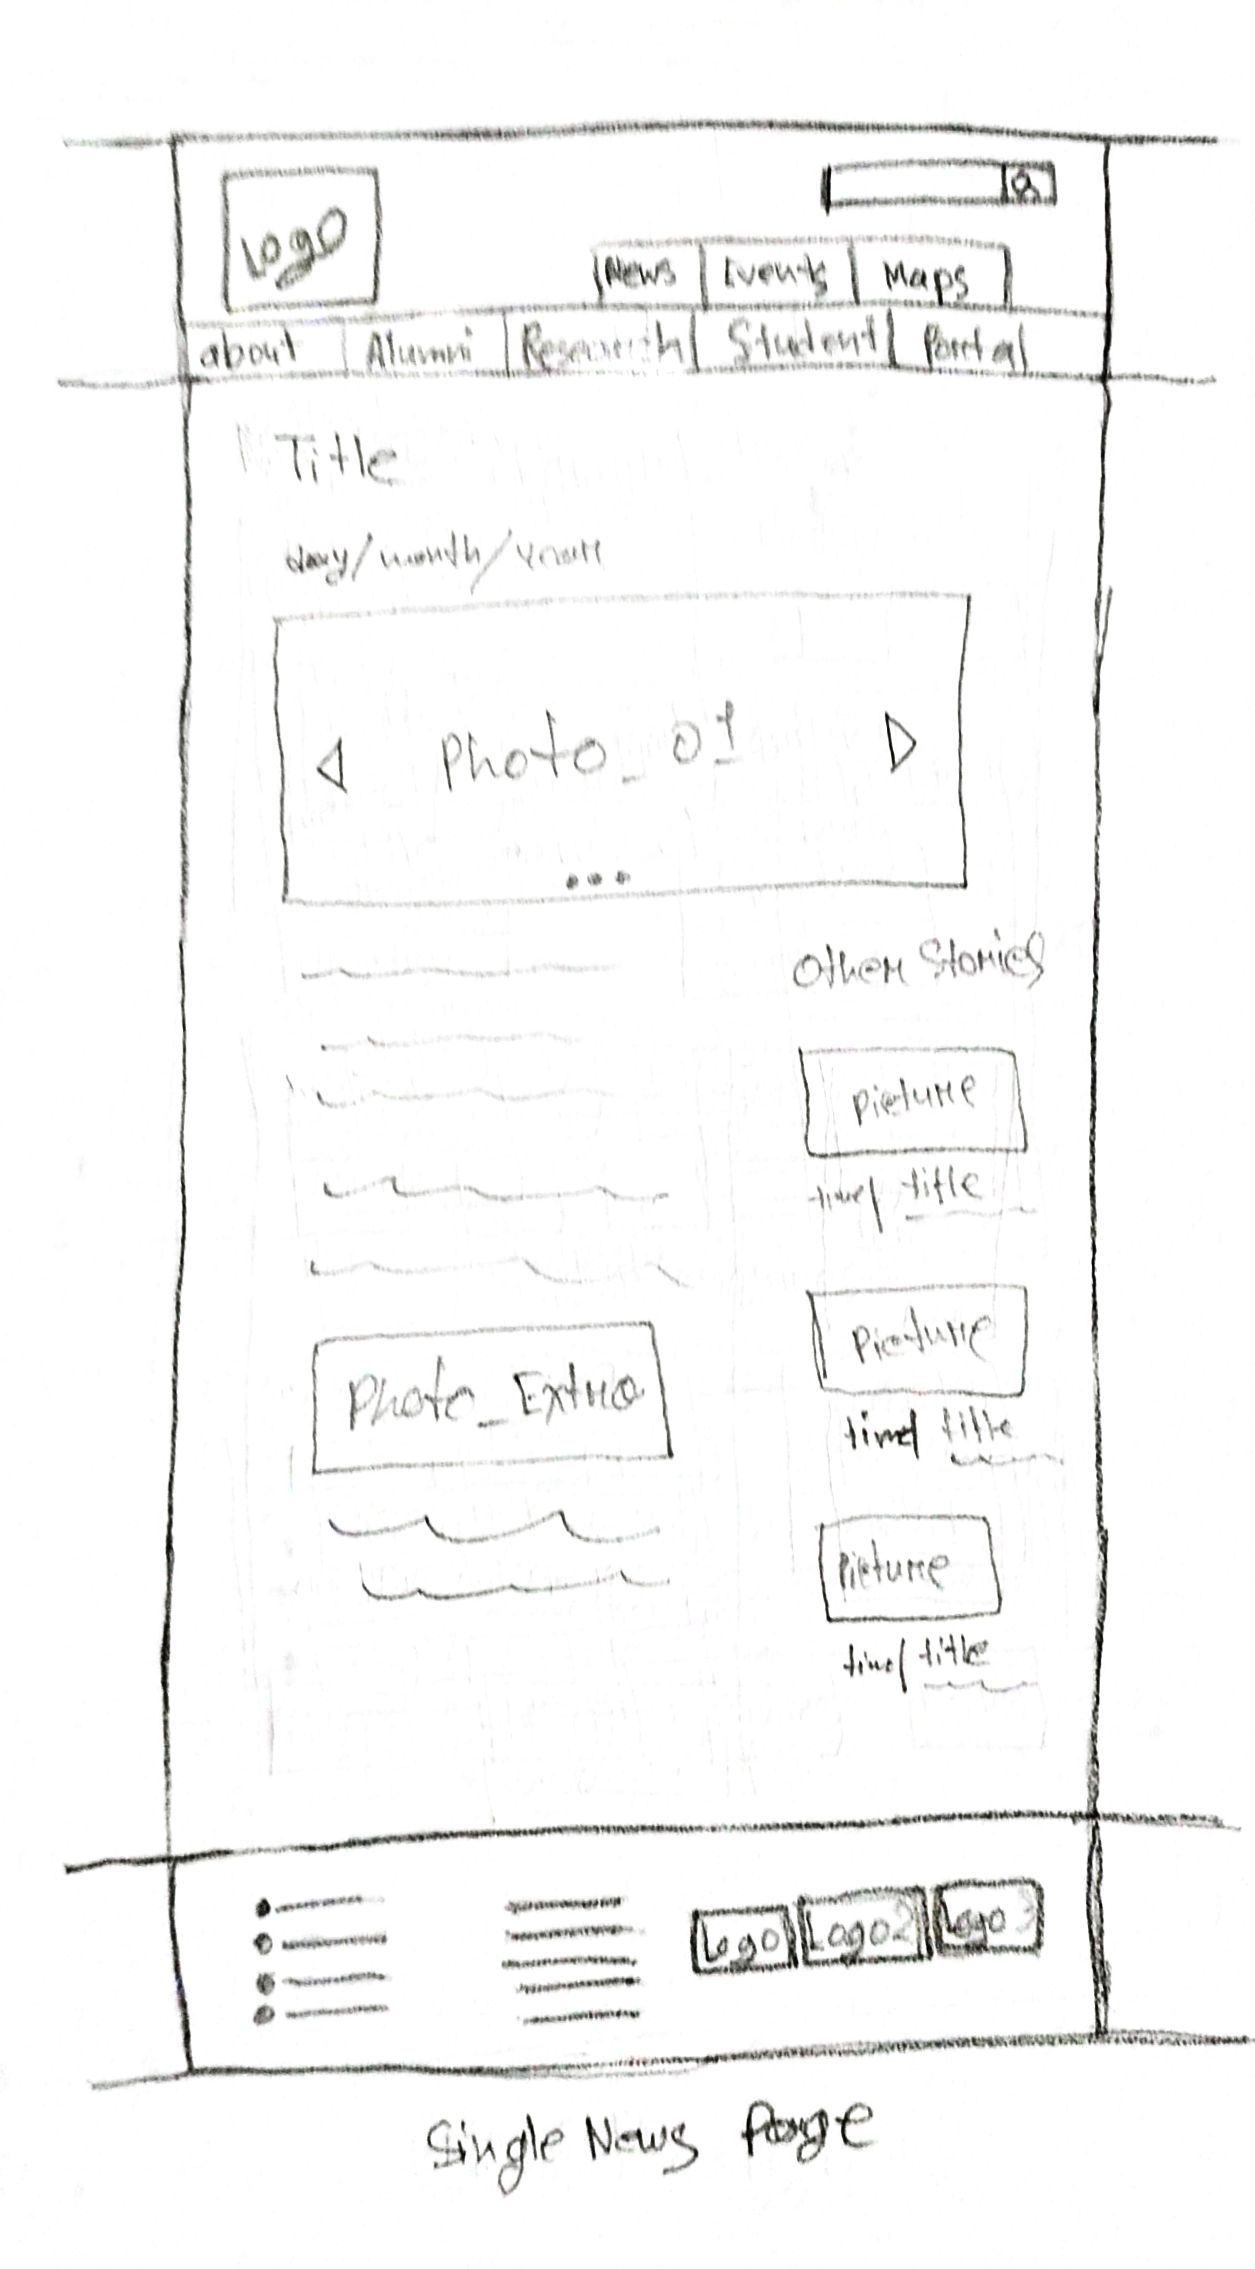 Logo
News Events Maps
about Alumni Research Student Portal
Title
day/month/year
Photo_01
Other Stories
Picture
time/ title
Photo_Extra
Picture
time/ title
Picture
time/ title
Logo Logo2 Logo3
Single News Page